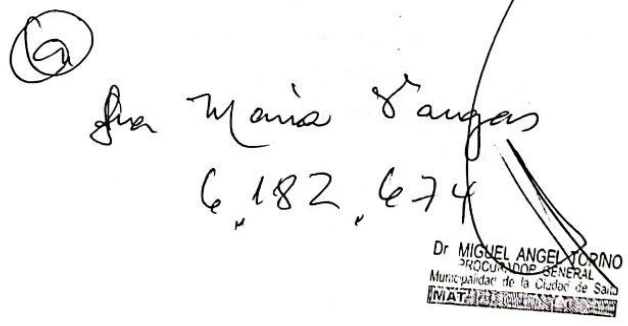 Ana María Vargas
6.182.674
Dr MIGUEL ANGEL TORINO
PROCURADOR GENERAL
Municipalidad de la Ciudad de Salta
MAT